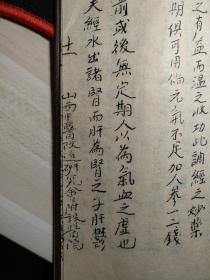 之有益而温之收功此調經之妙藥
期俱可用倘元氣不足加人參一二錢
前或後無定期人以為氣血之虛也
夫經水出諸腎而肝為腎之子肝鬱
十一
山西里醫改進研究會附設医院